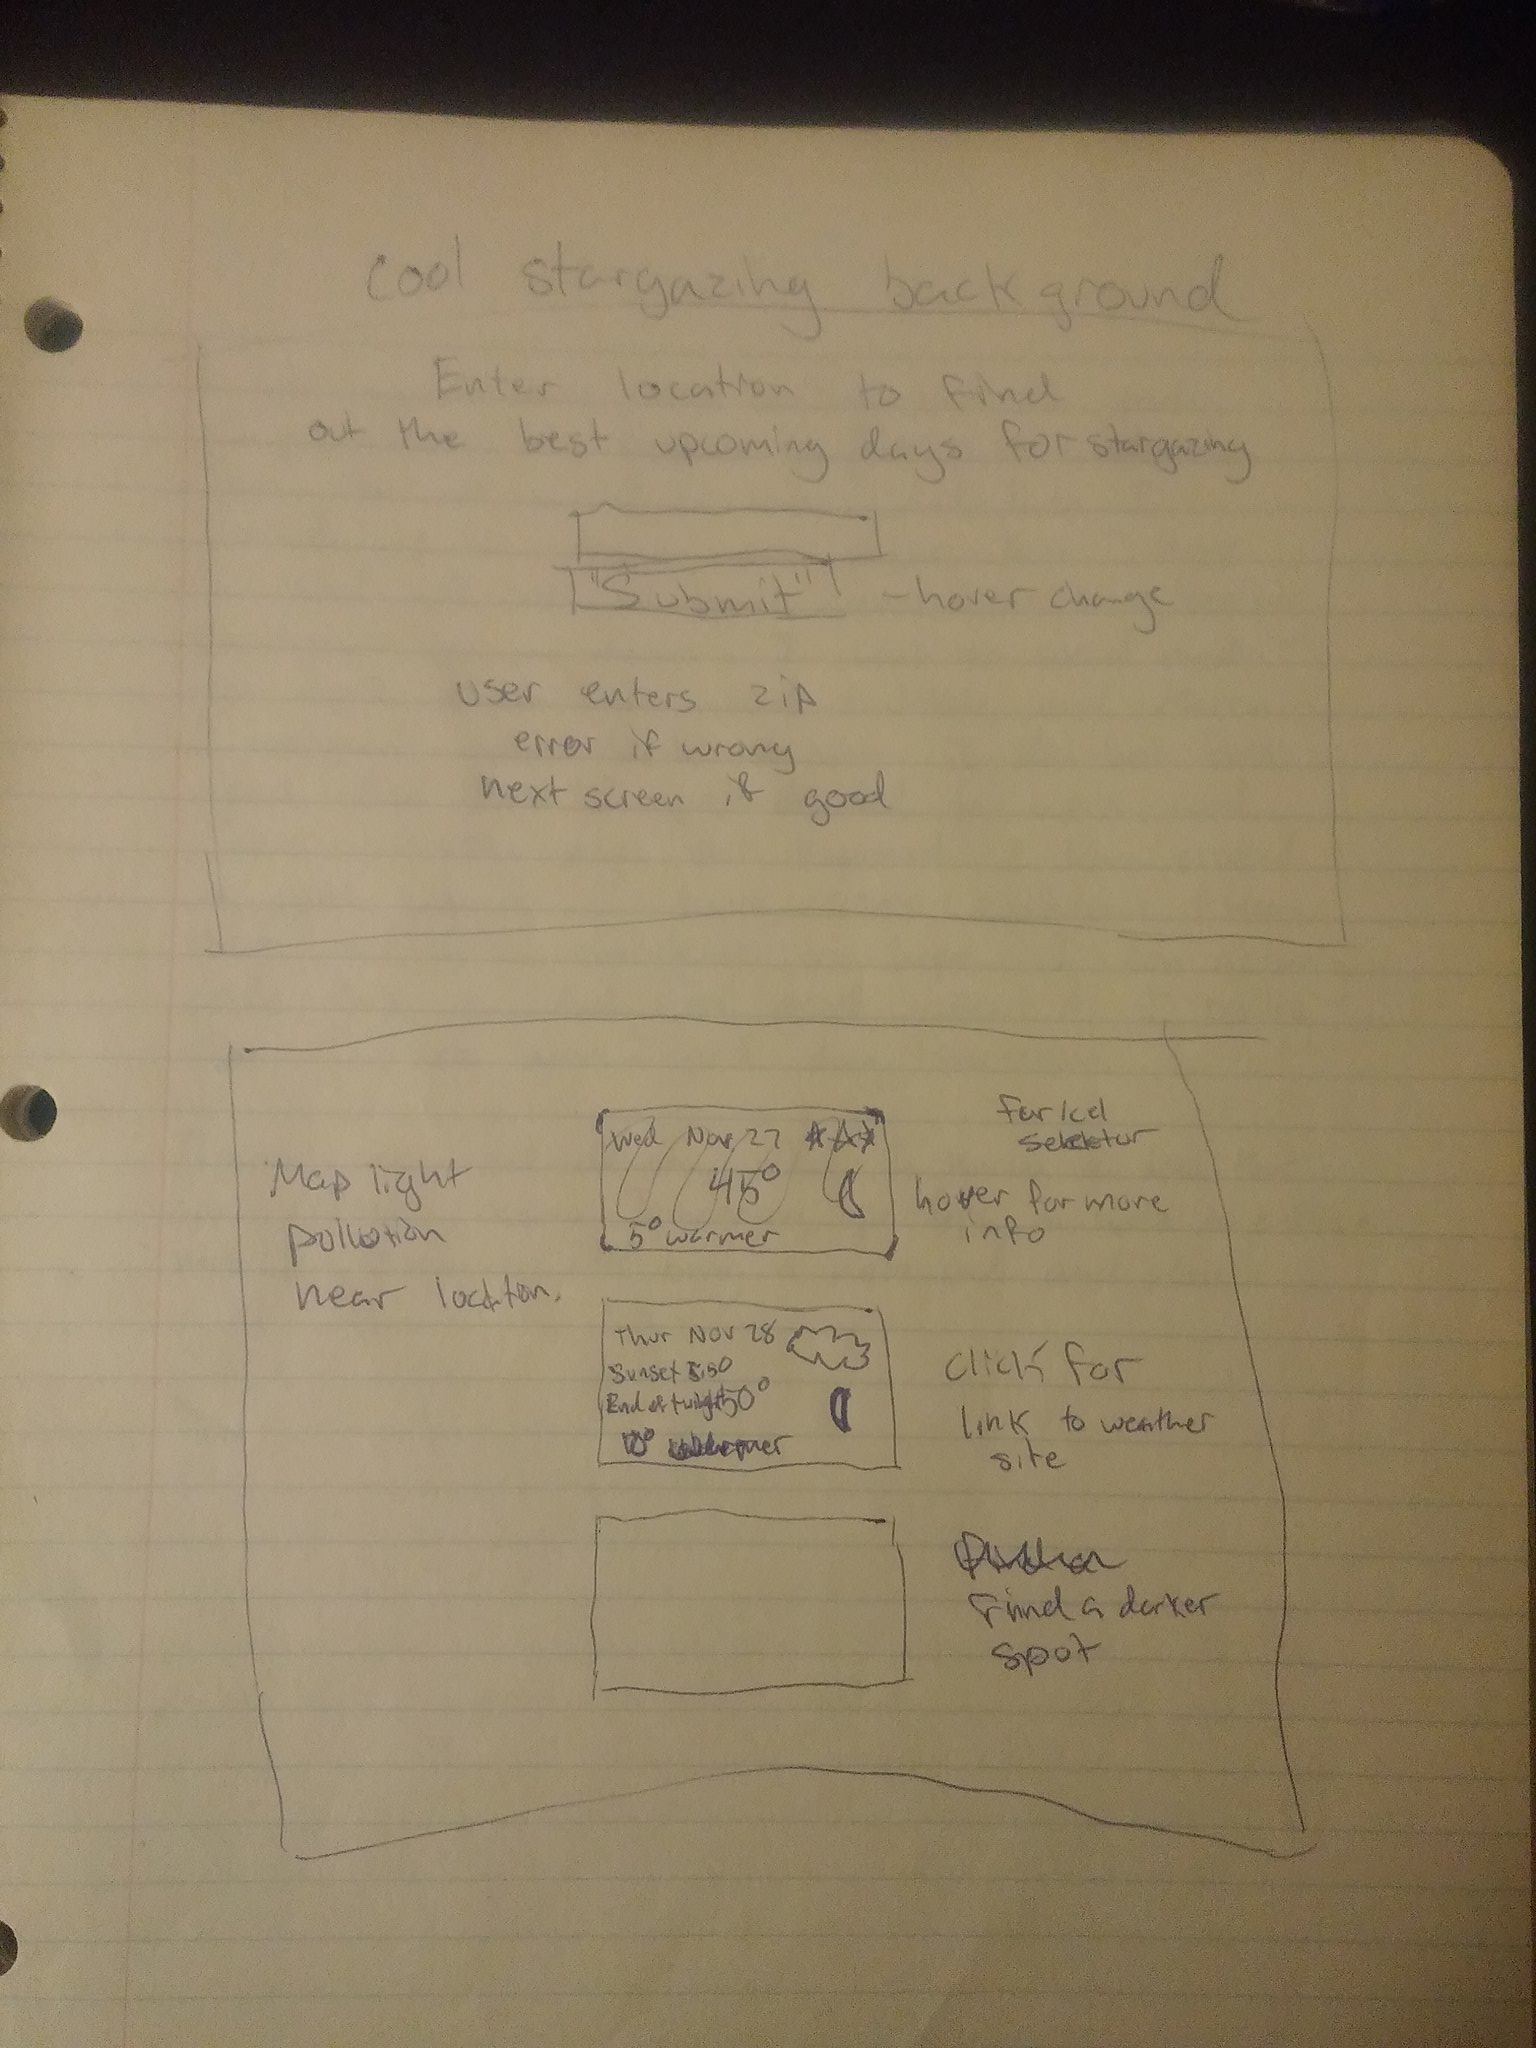 cool stargazing background
Enter location to find
out the best upcoming days for stargazing
"Submit" - hover change
user enters zip
error if wrong
next screen if good
Map light
pollution
near location.
Wed Nov 27
45°
5° warmer
Far/cel
hover for more
info
Thur Nov 28
Sunset
End of twilight 50°
click for
link to weather
site
Find a darker
spot